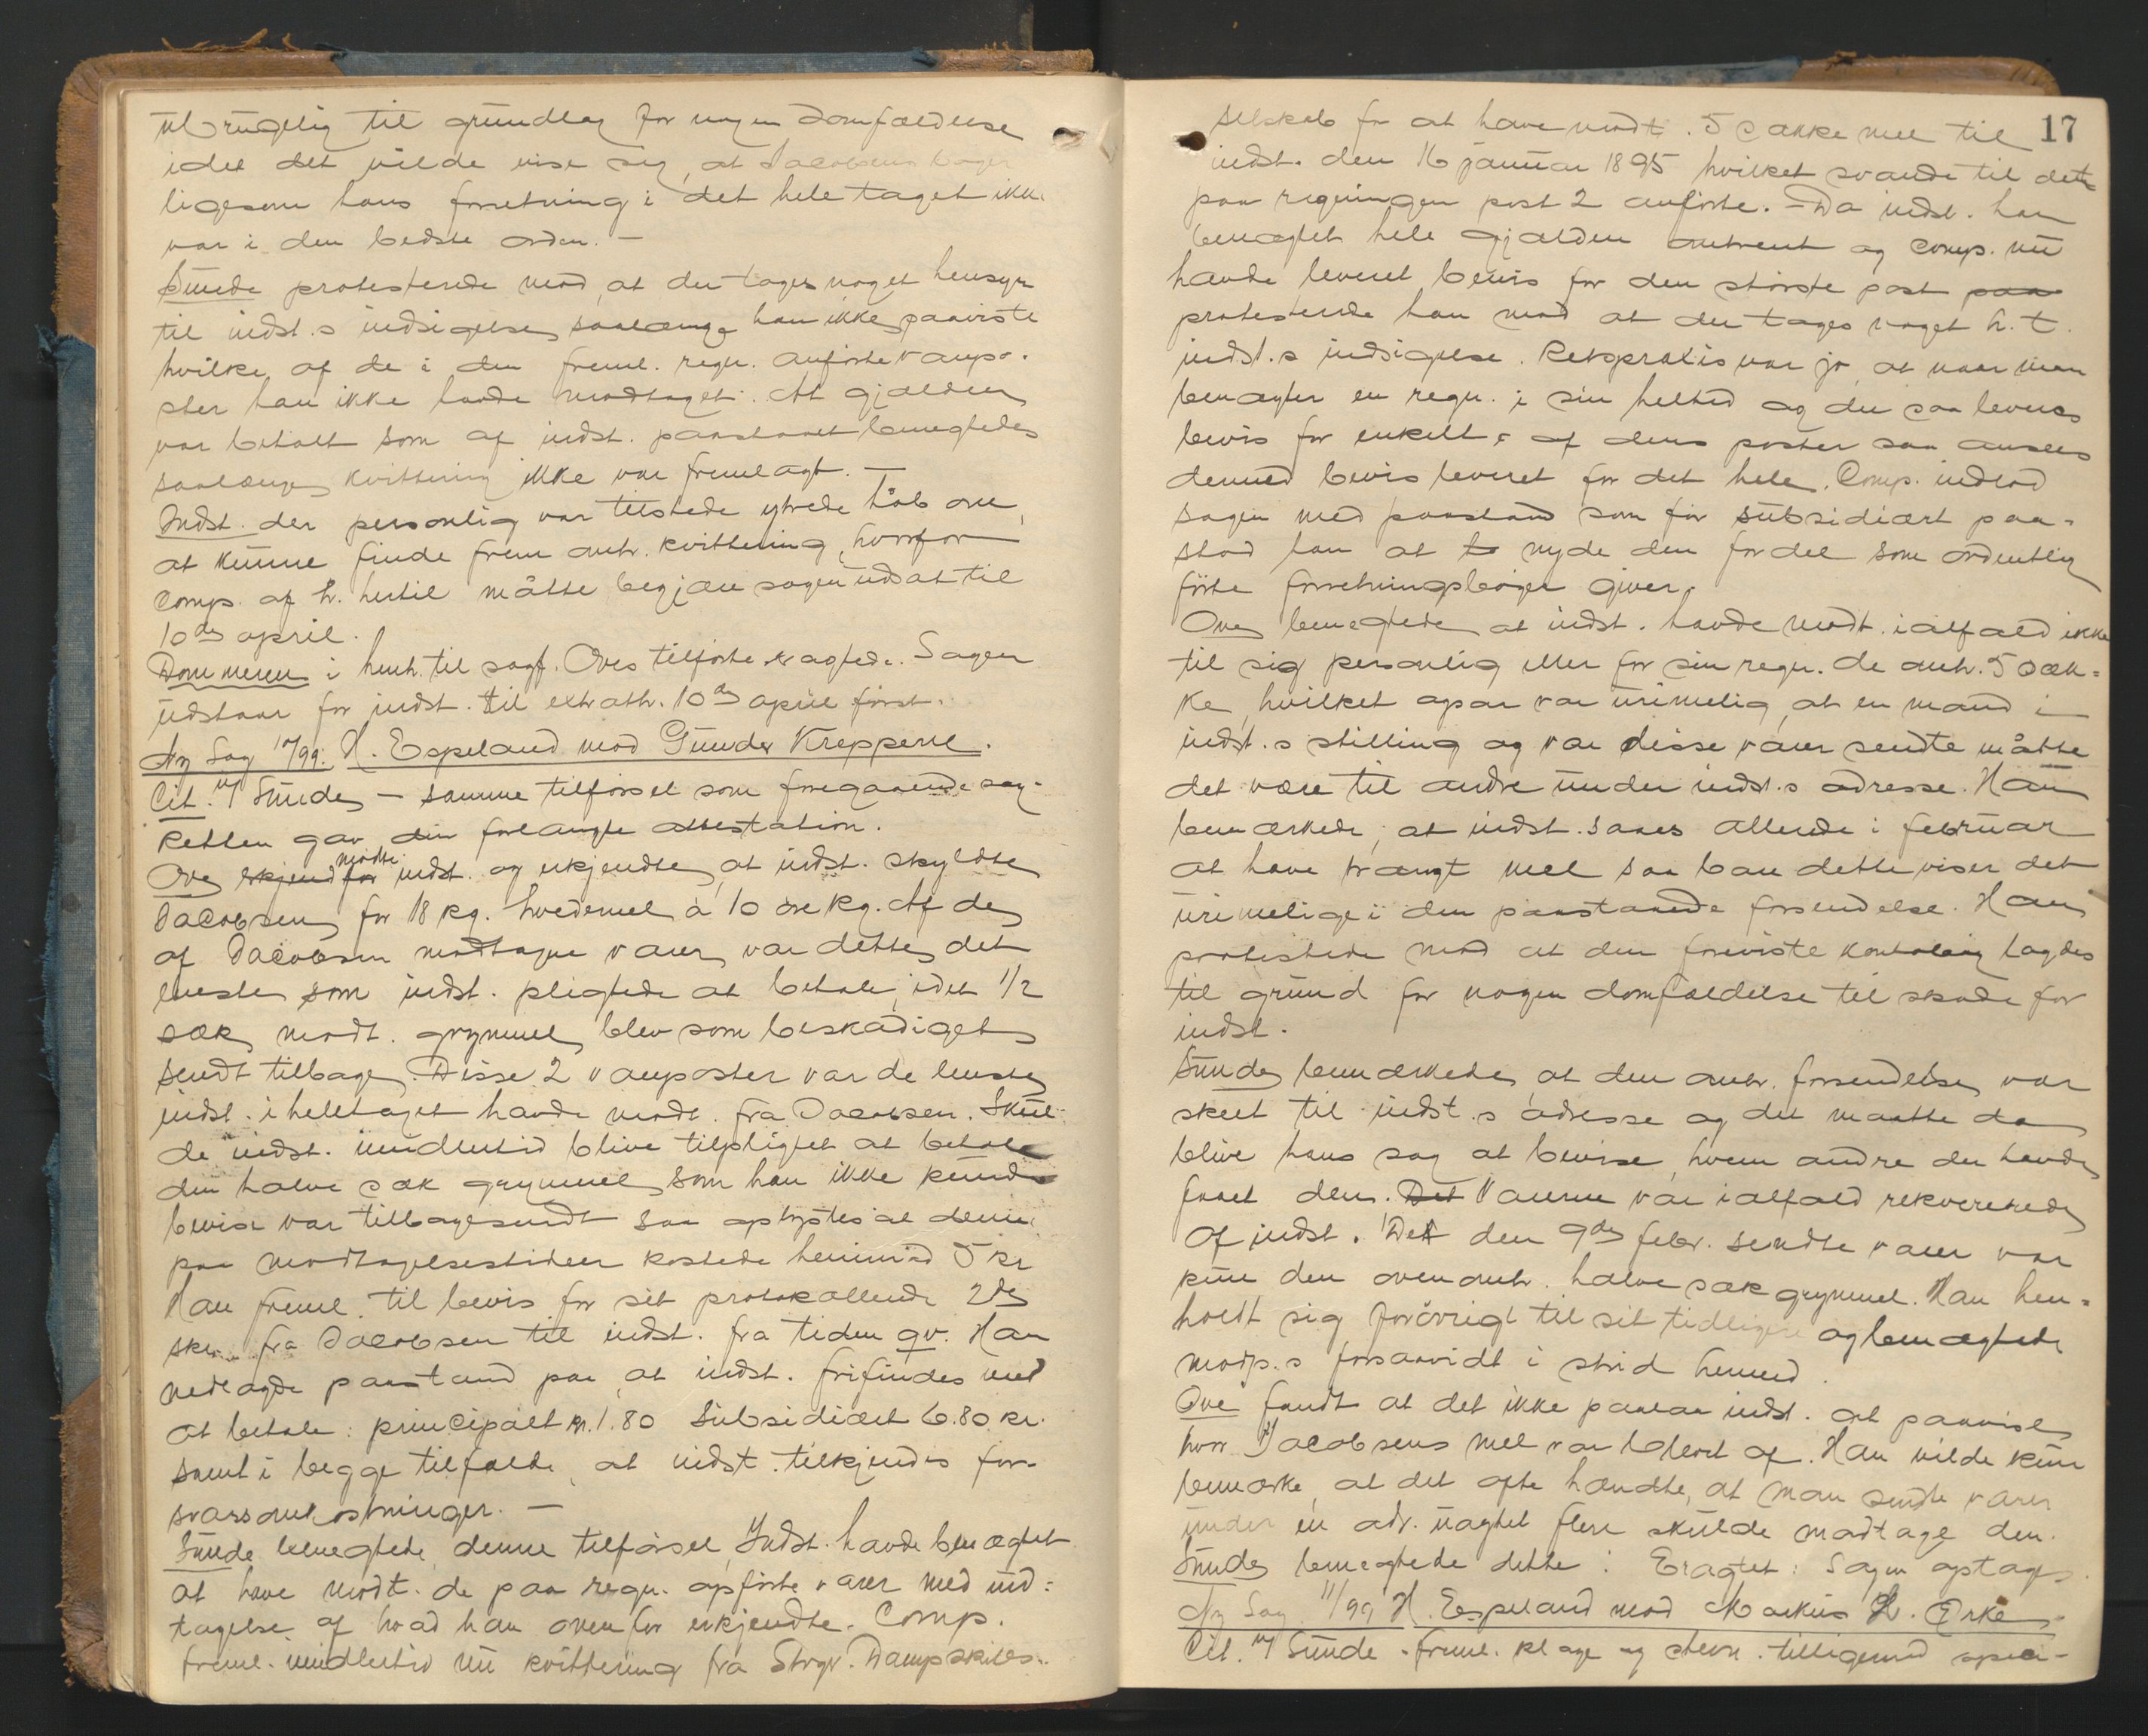 ubrugelig til grundlag for nogen domfældelse
idet det vilde vise sig, at Jacobsens bøger
ligesom hans forretning i det hele taget ikke
var i den bedste orden. —
Sunde protesterede mod, at der toges noget hensyn
til indst.s indsigelse saalænge han ikke paaviste
hvilke af de i den freml. regn. anførte varepo-
ster han ikke havde modtaget. At gjælden
var betalt som af indst. paastaaet benegtedes
saalænge kvittering ikke var fremlagt. —
Indst. der personlig var tilstede ytrede håb om,
at kunne finde frem anh. kvittering, hvorfor
Comp. af h. hertil måtte begjære sagen udsat til
10de april.
Dommeren i henh. til sagf. Oves tilførte eragtede. Sagen
udstaar for indst. til extrath. 10de april først.
Ny Sag 10/99: H. Espeland mod Gunder Kreppene.
Cit. v/ Sunde — samme tilførsel som foregaaende sag.
Retten gav den forlangte attestation.
Ove mødte for indst. og erkjendte, at indst. skyldte
Jacobsen for 18 kg. hvedemel à 10 øre kg. Af de
af Jacobsen modtagne varer var dette det
eneste som indst. pligtede at betale, idet 1/2
sæk modt. grynmel blev som beskadiget
sendt tilbage. Disse 2 vareposter var de eneste
indst. i heletaget havde modt. fra Jacobsen. Skul-
de indst. imidlertid blive tilpligtet at betale
den halve sæk grynmel som han ikke kunde
bevise var tilbagesendt saa oplystes at denne
paa modtagelsestiden kostede henimod 5 kr
Han freml. til bevis for sit protokollerede 2de
skr. fra Jacobsen til indst. fra tiden qv. Han
nedlagde paastand paa at indst. frifindes med
at betale: principalt kr. 1.80 Subsidiært 6.80 kr.
samt i begge tilfælde, at indst. tilkjendes for-
svarsomkostninger. —
Sunde benegtede denne tilførsel. Indst. havde benægtet
at have modt. de paa regn. opførte varer med und-
tagelse af hvad han ovenfor erkjendte. Comp.
freml. imidlertid nu kvittering fra Stvgr. Dampskibs-
17
selskab for at have modt. 5 sække mel til
indst. den 16 januar 1895 hvilket svarede til det
paa regningen post 2 anførte. Da indst. har
benægtet hele gjælden omtrent og comp. nu
havde leveret bevis for den største post
protesterede han mod at der tages noget h. t.
indst.s indsigelse. Retspraxis var jo at naar man
benægter en regn. i sin helhed og der saa leveres
bevis for enkelte af dens poster saa ansees
dermed bevis leveret for det hele. Comp. indlod
sagen med paastand som før subsidiært paa-
stod han at nyde den fordel som ordentlig
førte forretningsbøger giver.
Ove benegtede at indst. havde modt. ialfald ikke
til sig personlig eller for sin regn. de anh. 5 sæk-
ke, hvilket ogsaa var urimelig, at en mand i
indst.s stilling og var disse varer sendte måtte
det være til andre under indst.s adresse. Han
bemærkede, at indst. saaes allerede i februar
at have trængt mel saa bare dette viser det
urimelige i den paastaaede forsendelse. Han
protesterede mod at den foreviste lagdes
til grund for nogen domfældelse til skade for
indst.
Sunde bemærkede, at den anh. forsendelse var
skeet til indst.s adresse og det maatte da
blive hans sag at bevise, hvem andre der havde
faaet dem. Varerne var ialfald rekvirerede
af indst. Det den 9de febr. sendte varer var
kun den ovenanh. halve sæk grynmel. Han hen-
holdt sig forøvrigt til sit tidligere og benægtede
modp.s forsaavidt i strid hermed.
Ove fandt at det ikke paalaa indst. at paavise
hvor Jacobsens mel var blevet af. Han vilde kun
bemærke, at det ofte hændte, at man sendte varer
under en adr. uagtet flere skulde modtage dem.
Sunde benegtede dette: Eragtet: Sagen optages.
Ny Sag 11/99 H. Espeland mod Markus H. Ørke
Cit. v/ Sunde. freml. klage og stevn. tilligemed speci-